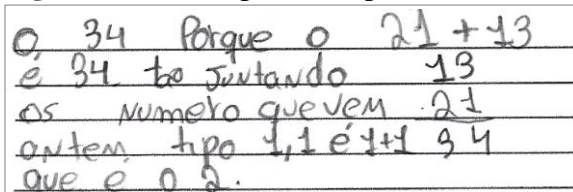 O 34 Porque o 21 + 13
é 34 to Juntando 13
os numero que vem 21
ontem tipo 1,1 é 1+1 34
que é o 2.